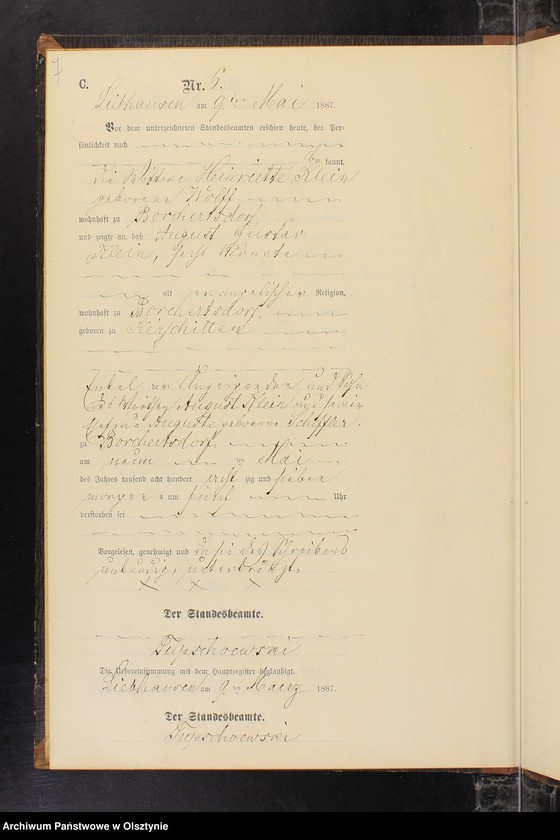 7
C.
Nr. 6.
Liebhausen am 9ten Mai 1887.
Vor dem unterzeichneten Standesbeamten erschien heute, der Per-
sönlichkeit nach
be kannt,
die Wittwe Henriette Klein
geborene Wolff
wohnhaft zu Borchertsdorf
und zeigte an, daß August Gustav
Klein, sechs Monate
alt evangelischer Religion,
wohnhaft zu Borchertsdorf,
geboren zu Kirschitten
Enkel der Angeigenden und Sohn
des Wirths August Klein und seiner
Ehefrau Auguste geborene Scheffler.
zu Borchertsdorf,
am neun ten Mai
des Jahres tausend acht hundert acht zig und sieben
morgens um fünf Uhr
verstorben sei
Vorgelesen, genehmigt und da sie des Schreibens
unkundig, unterkreuzt.
x x x
Der Standesbeamte.
Die Uebereinstimmung mit dem Hauptregister beglaubigt.
Liebhausen am 9ten 1887.
Der Standesbeamte.
Archiwum Państwowe w Olsztynie